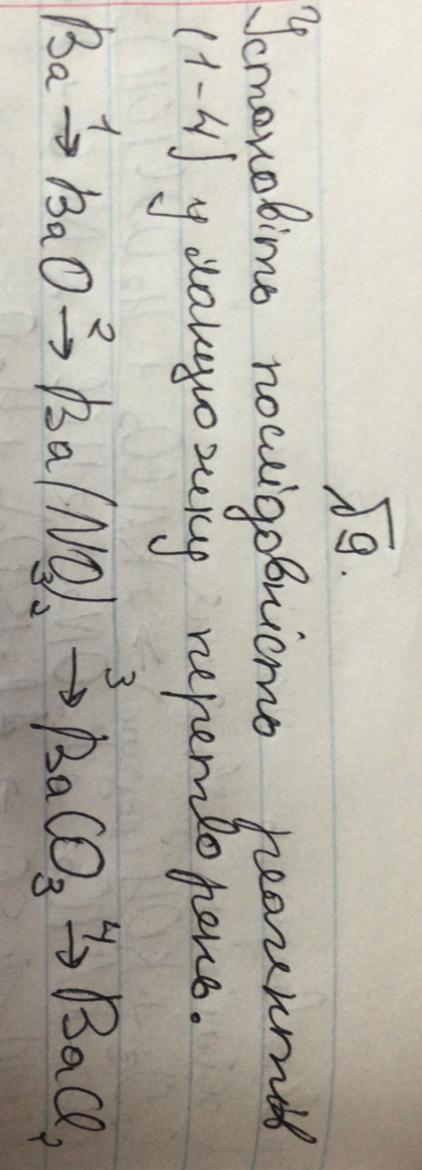 Б9.
Установіть послідовність реагентів
(1-4) у ланцюжку перетворень.
Ba →¹ BaO →² Ba(NO₃)₂ →³ BaCO₃ →⁴ BaCl₂